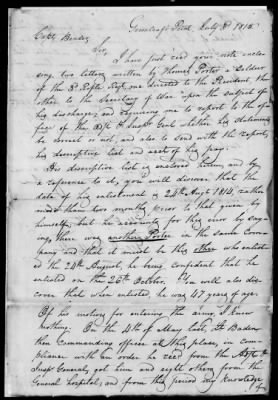 Greenleafs Point July 8th 1815
Colo Bender
Sir,
I have just recd your note enclo-
sing two letters, written by Thomas Porter, a Soldier
of the 3d Rifle Regt, one directed to the President, the
other to the Secretary of War upon the subject of
his discharge; and requiring me to report to the of-
fice of the Adjt & Inspr Genl whether his statements
be correct or not, and also to send with the report,
his descriptive list and acct of his pay.
His descriptive list is enclosed herein, and by
a reference to it, you will discover that the
date of his enlistment is 24th Augt 1814, rather
more than two months prior to that given by
himself; but he accounts for this error by say-
ing, there was another Porter in the same Com-
pany and that it must be this other who enlist-
ed the 24th August, he being confident that he
enlisted on the 26th October. You will also dis-
cover that when enlisted, he was 47 years of age.
Of his motives for entering the army, I know
nothing. On the 4th of May last, Lt Baden
then commanding officer at this place, in com-
pliance with an order he recd from the Adjt &
Inspr General, got him and eight others from the
General hospital; and from this period my knowledge
of